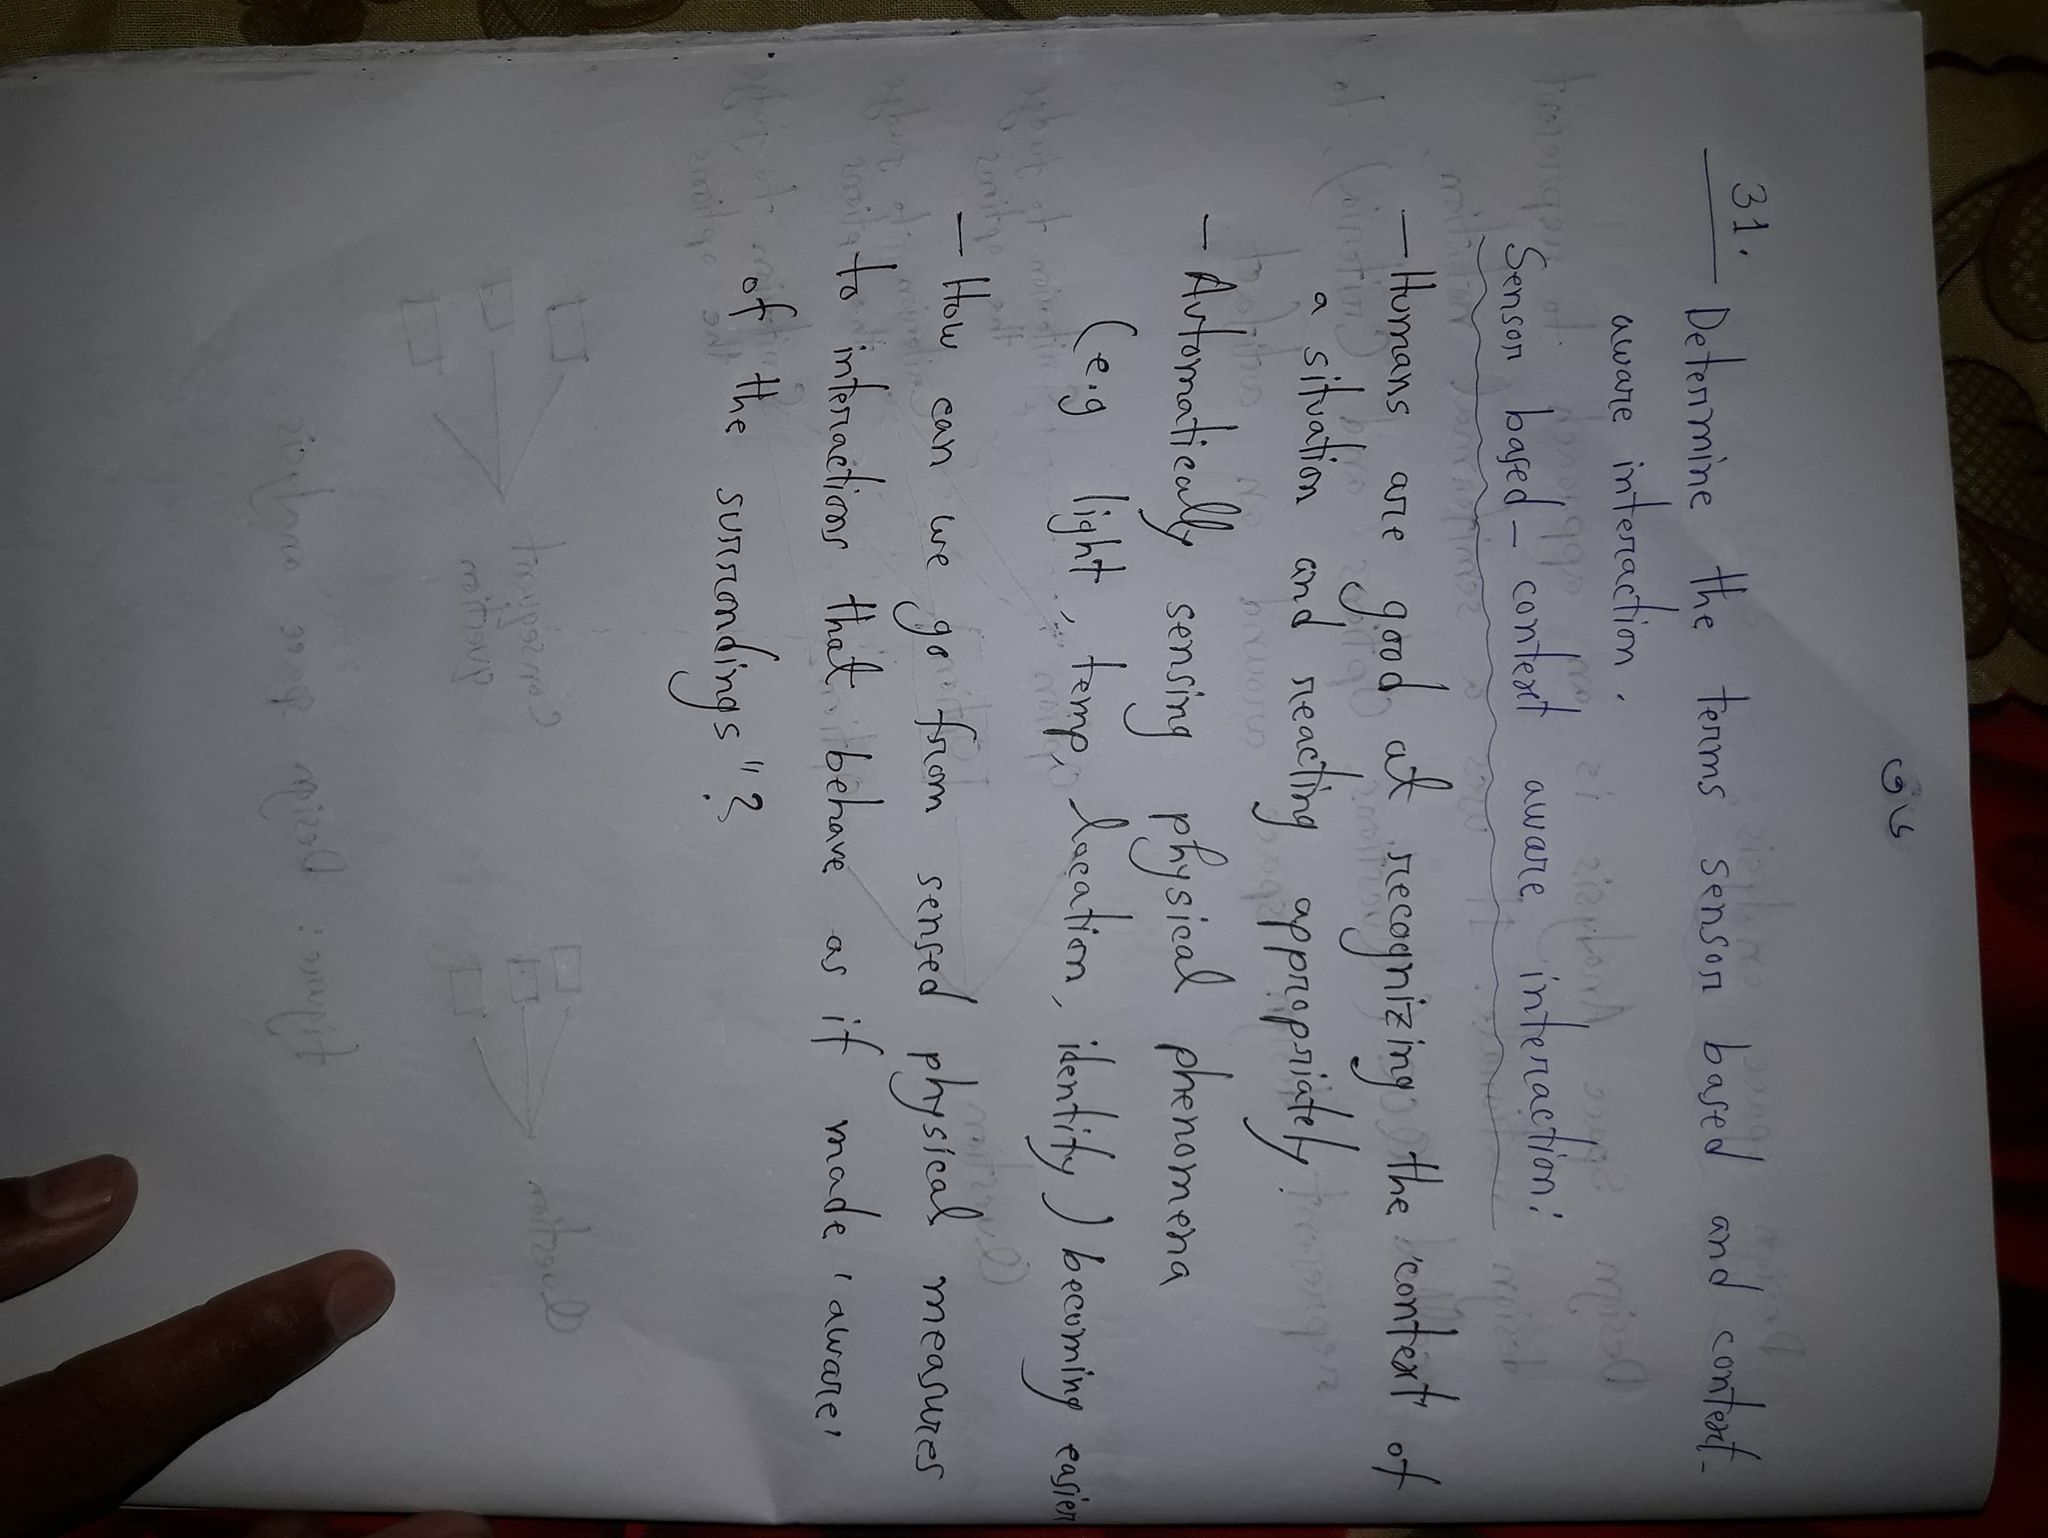 ৩৬
31.
Determine the terms sensor based and context-
aware interaction.
Sensor based - context aware interaction:
- Humans are good at recognizing the 'context' of
a situation and reacting appropriately.
- Automatically sensing physical phenomena
(e.g light, temp, location, identity) becoming easier
- How can we go from sensed physical measures
to interactions that behave as if made 'aware'
of the surrondings"?